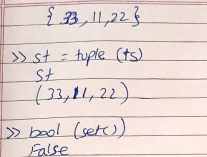 { 33, 11, 22 }
>> st = tuple (ts)
st
(33, 11, 22)
>> bool (set())
False